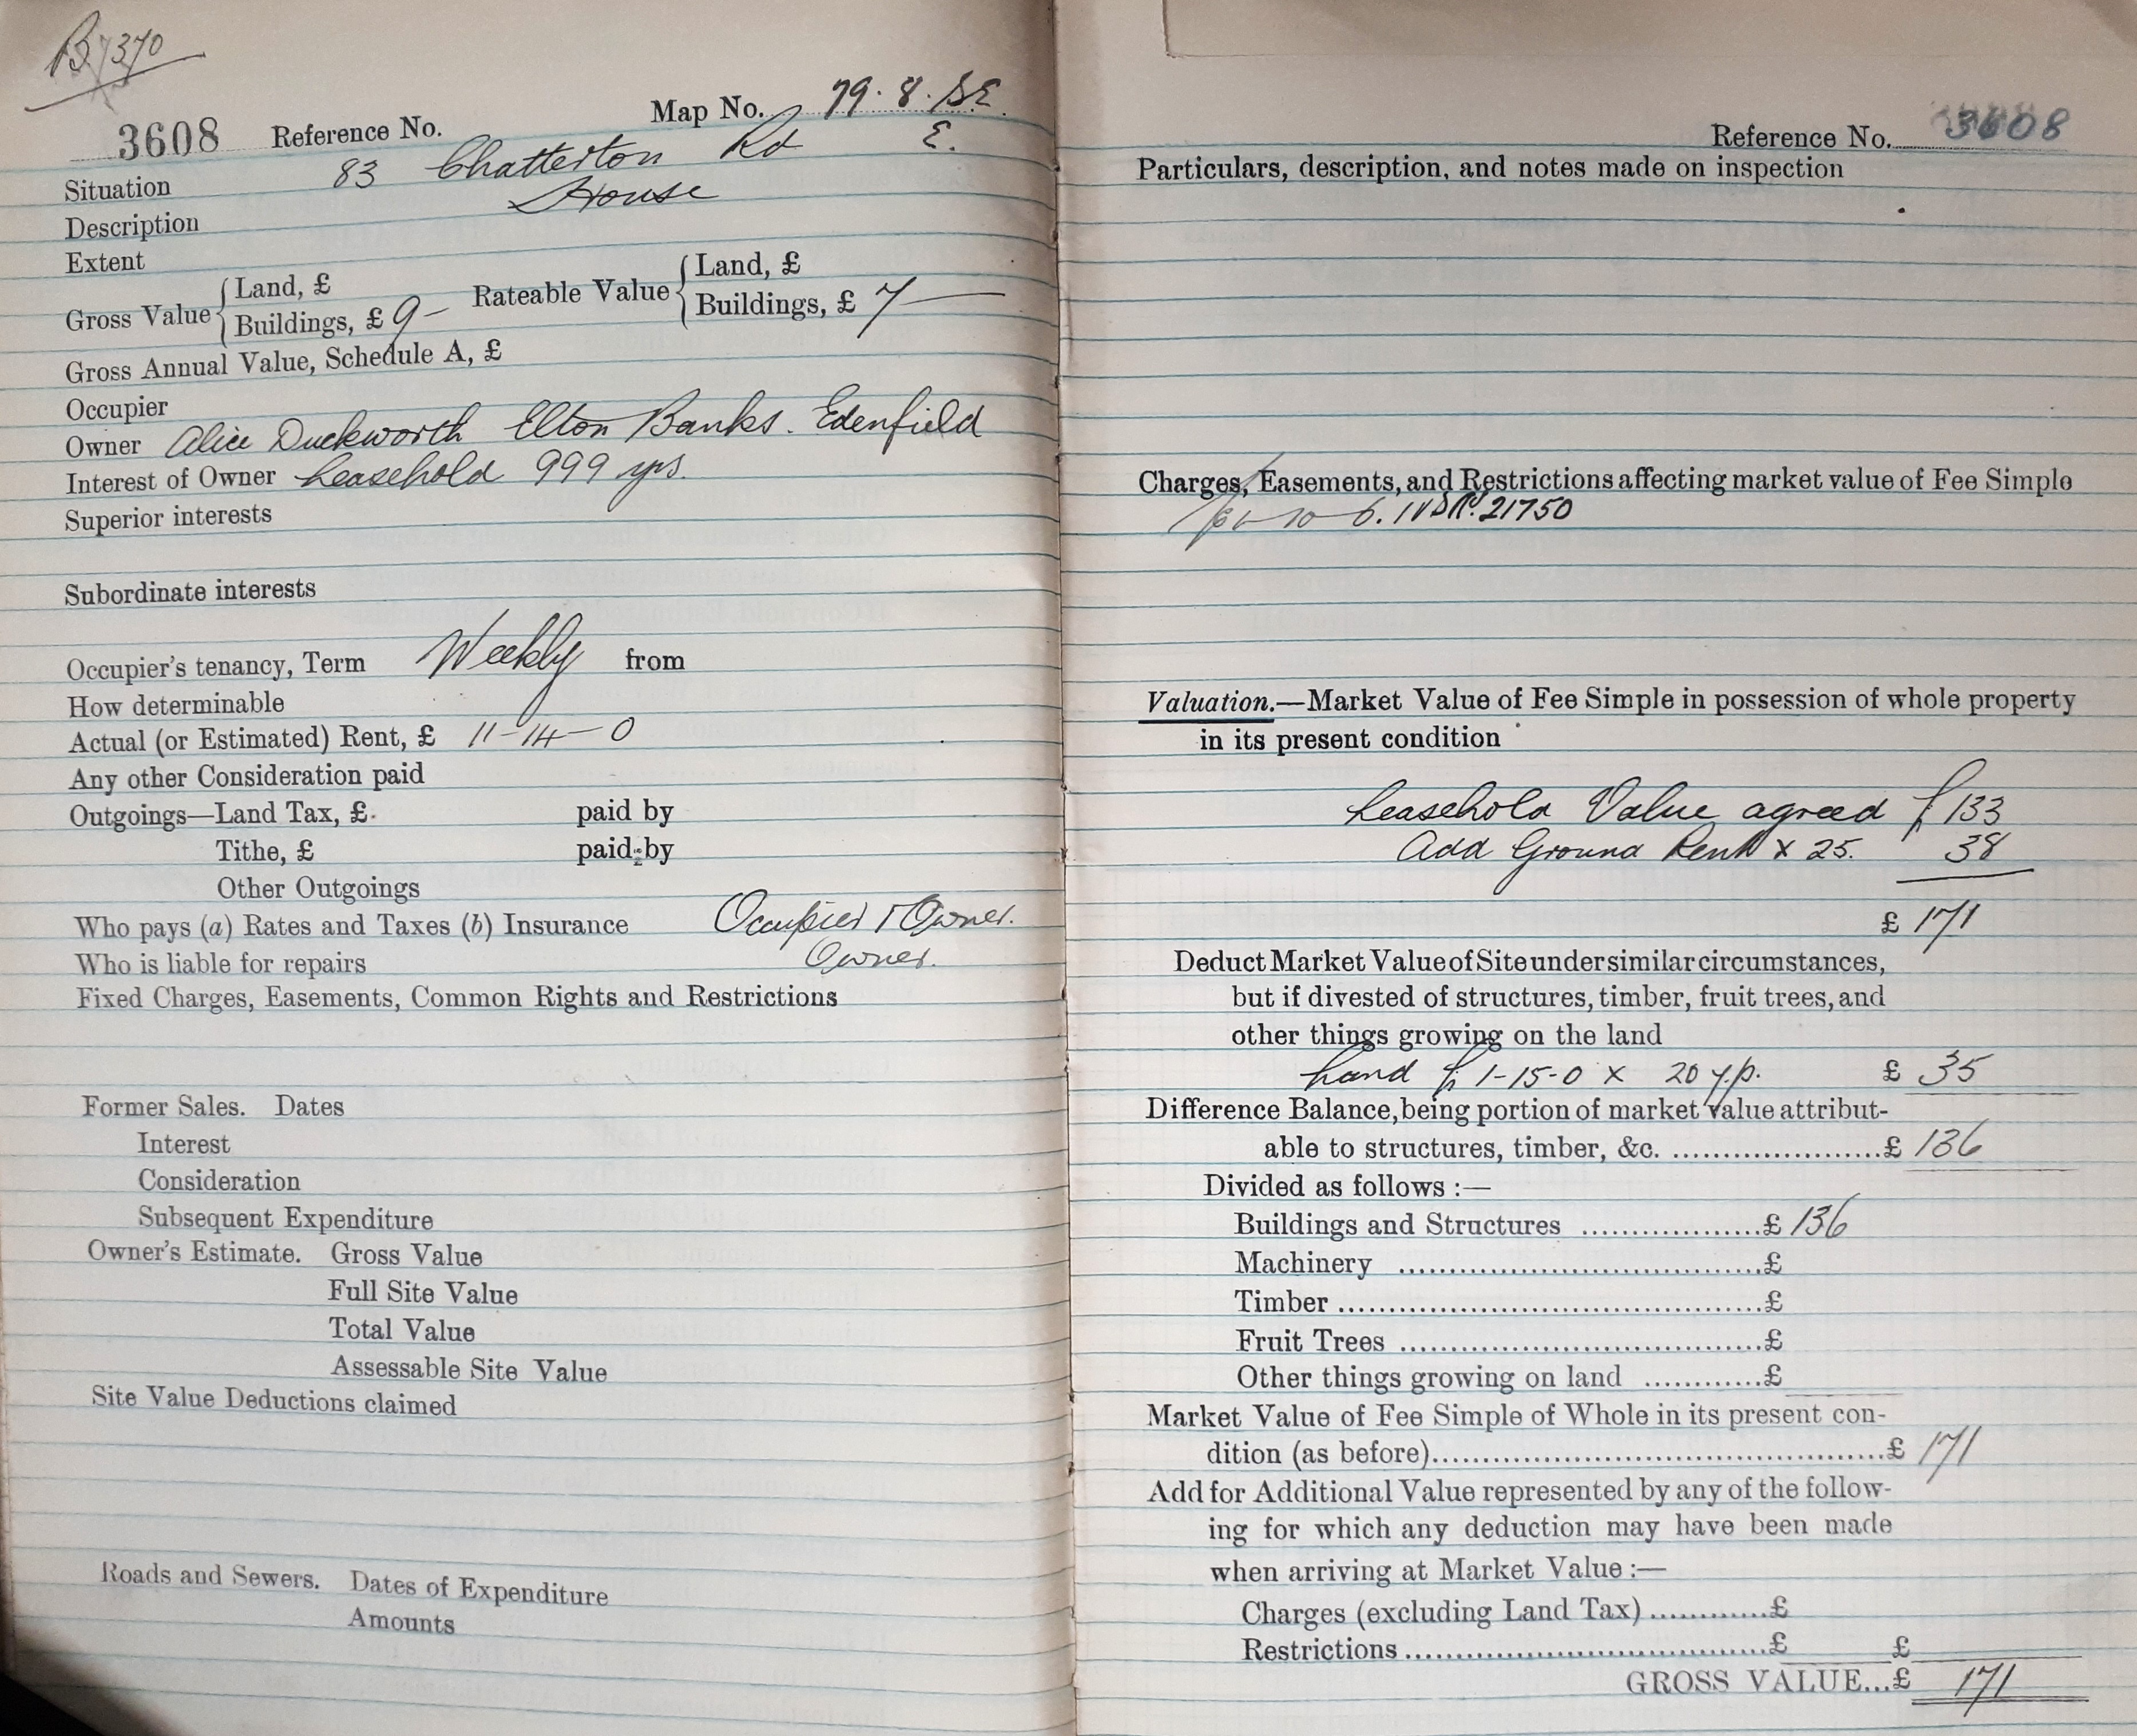 B7370
3608 Reference No. Map No. 79. 8. SE
Situation 83 Chatterton Rd E.
Description House
Extent
Gross Value { Land, £ Buildings, £ 9 – Rateable Value { Land, £ Buildings, £ 7 —
Gross Annual Value, Schedule A, £
Occupier
Owner Alice Duckworth Elton Banks. Edenfield
Interest of Owner Leasehold 999 yrs.
Superior interests
Subordinate interests
Occupier's tenancy, Term Weekly from
How determinable
Actual (or Estimated) Rent, £ 11-14-0
Any other Consideration paid
Outgoings—Land Tax, £ paid by
Tithe, £ paid by
Other Outgoings
Who pays (a) Rates and Taxes (b) Insurance Occupier & Owner.
Who is liable for repairs Owner.
Fixed Charges, Easements, Common Rights and Restrictions
Former Sales. Dates
Interest
Consideration
Subsequent Expenditure
Owner's Estimate. Gross Value
Full Site Value
Total Value
Assessable Site Value
Site Value Deductions claimed
Roads and Sewers. Dates of Expenditure
Amounts
Reference No. 3608
Particulars, description, and notes made on inspection
Charges, Easements, and Restrictions affecting market value of Fee Simple
21750
Valuation.—Market Value of Fee Simple in possession of whole property
in its present condition
Leasehold Value agreed £ 133
Add Ground Rent x 25. 38
£ 171
Deduct Market Value of Site under similar circumstances,
but if divested of structures, timber, fruit trees, and
other things growing on the land
Land £ 1-15-0 x 20 y.p. £ 35
Difference Balance, being portion of market value attribut-
able to structures, timber, &c. .....................£ 136
Divided as follows :—
Buildings and Structures ..................£ 136
Machinery ....................................£
Timber ..........................................£
Fruit Trees ....................................£
Other things growing on land ............£
Market Value of Fee Simple of Whole in its present con-
dition (as before)..............................................£ 171
Add for Additional Value represented by any of the follow-
ing for which any deduction may have been made
when arriving at Market Value :—
Charges (excluding Land Tax) ............£
Restrictions ....................................£ £
GROSS VALUE...£ 171